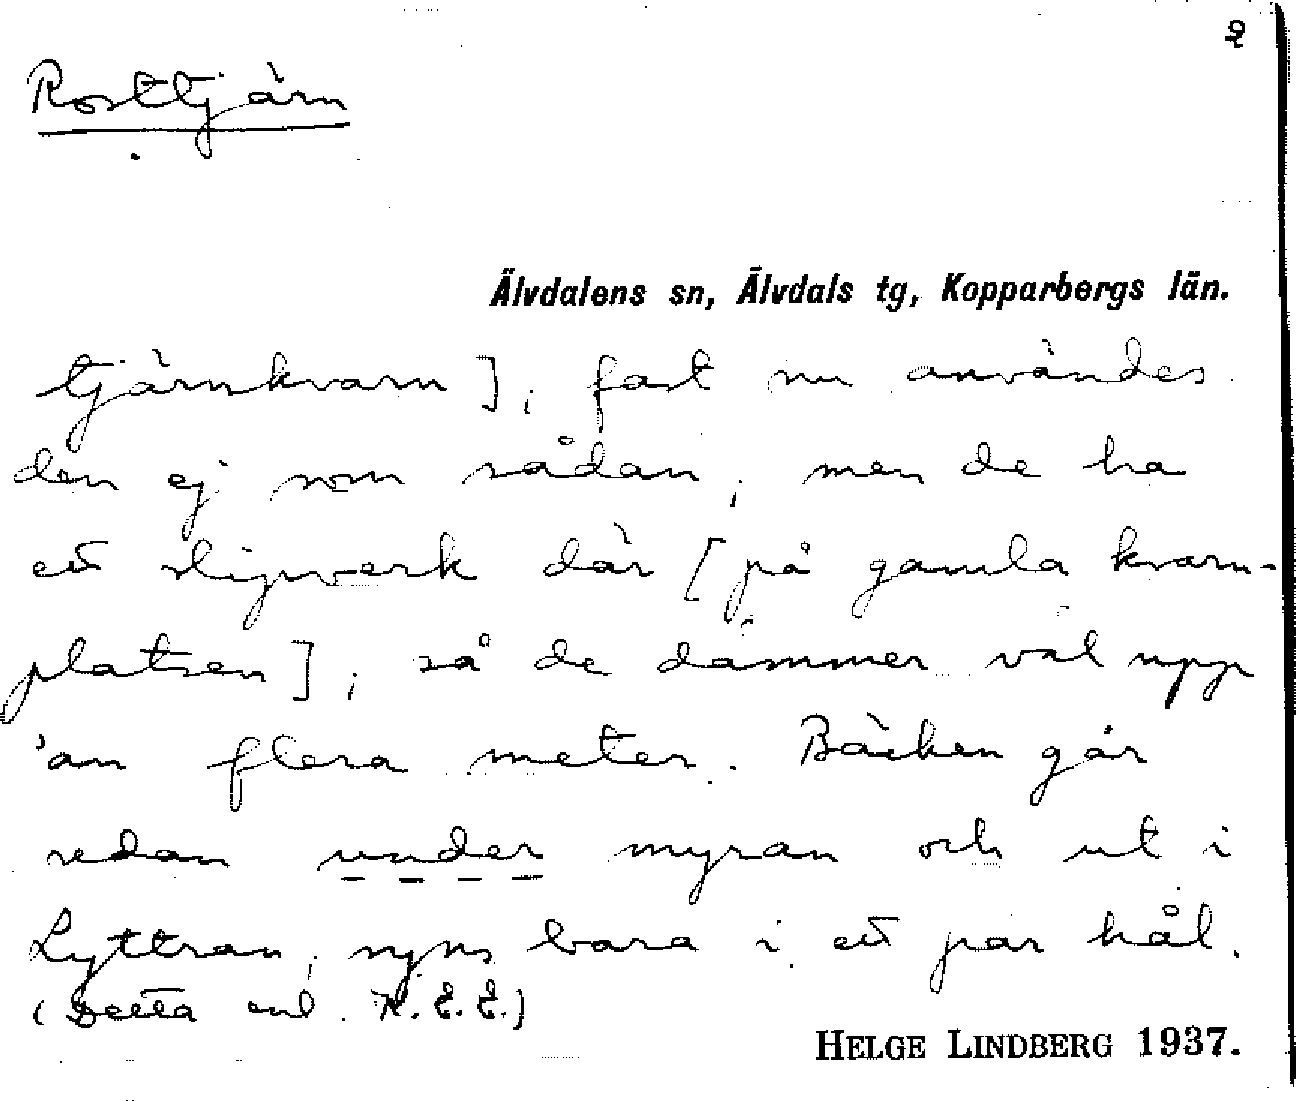 2
Rosttjärn
Älvdalens sn, Älvdals tg, Kopparbergs län.
tjärnkvarn], fast nu användes
den ej som sådan, men de ha
ett slipverk där [på gamla kvarn-
platsen], så de dämmer väl upp
'an flera meter. Bäcken går
sedan under myran och ut i
Lyttran, syns bara i ett par hål.
(Detta enl. K.E.E.)
HELGE LINDBERG 1937.